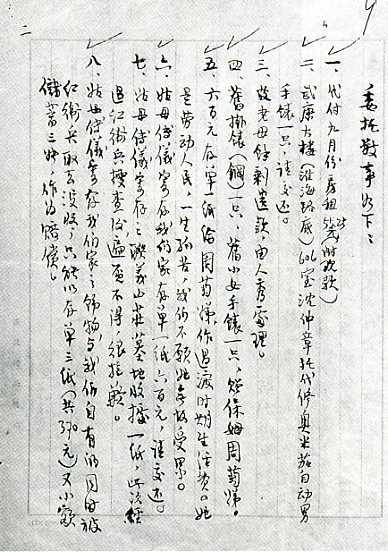 委托数事如下：
一、代付九月份房租55.29元（附现款）
二、武康大楼（淮海路底）606室沈仲章托代修奥米茄自动男
手錶一只，请交还。
三、故老母餘剩遗款，由人秀處理。
四、舊掛錶（鋼）一只，舊小女手錶一只，贈保姆周菊娣。
五、六百元存单一纸给周菊娣，作过渡时期生活费。她
是劳动人民，一生孤苦，我们不願她無故受累。
六、姑母傅儀寄存我们家存单一纸六百元，请交还。
七、姑母傅儀寄存之联义山莊墓地收據一纸，此次經
过红衛兵搜查後遍觅不得，很抱歉。
八、姑母傅儀寄存我们家之飾物，与我们自有的同时被
红衛兵取去没收，只能以存单三纸（共370元）又小额
儲蓄三张，作为赔償。
二